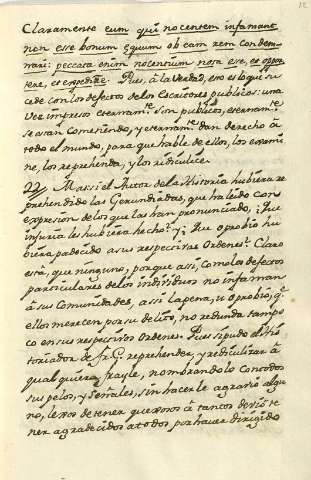 12
Claramente eum, qui nocentem infamant
non esse bonum, equum ob eam rem condem-
nari: peccata enim nocentium nota esse, et opor
tere, et expedire. Pues, à la Verdad, esto es lo qe. su
cede con los defectos de los Escritores publicos: una
vez impresos eternamte. son publicos, eternamte.
se estan cometiendo, y eternamte. dan derecho à
todo el mundo, para que hable de ellos, los exami
ne, los reprehenda, y los ridiculice.
22 Mas si el Autor de la Historia hubiera re
prehendido las Gerundiadas, que ha leido con
expresion de los que las han pronunciado, ¿Que
injuria les hubiera hecho? y ¿Que oprobio hu
biera padecido a sus respectivas Ordenes? Claro
está, que ninguno, porque assi, como los defectos
particulares de los individuos no infaman
à sus Comunidades, assi la pena, u oprobio, qe.
ellos merecen por su delito, no redunda tampo
co en sus respectivos Ordenes. Pues si pudo el His
toriador de fr. G. reprehender, y ridiculizar à
qualquiera frayle, nombrandolo con todos
sus pelos, y señales, sin hacerle agravio algu
no, lexos de tener quexosos à tantos devió te
ner agradecidos a todos por haver dirigido